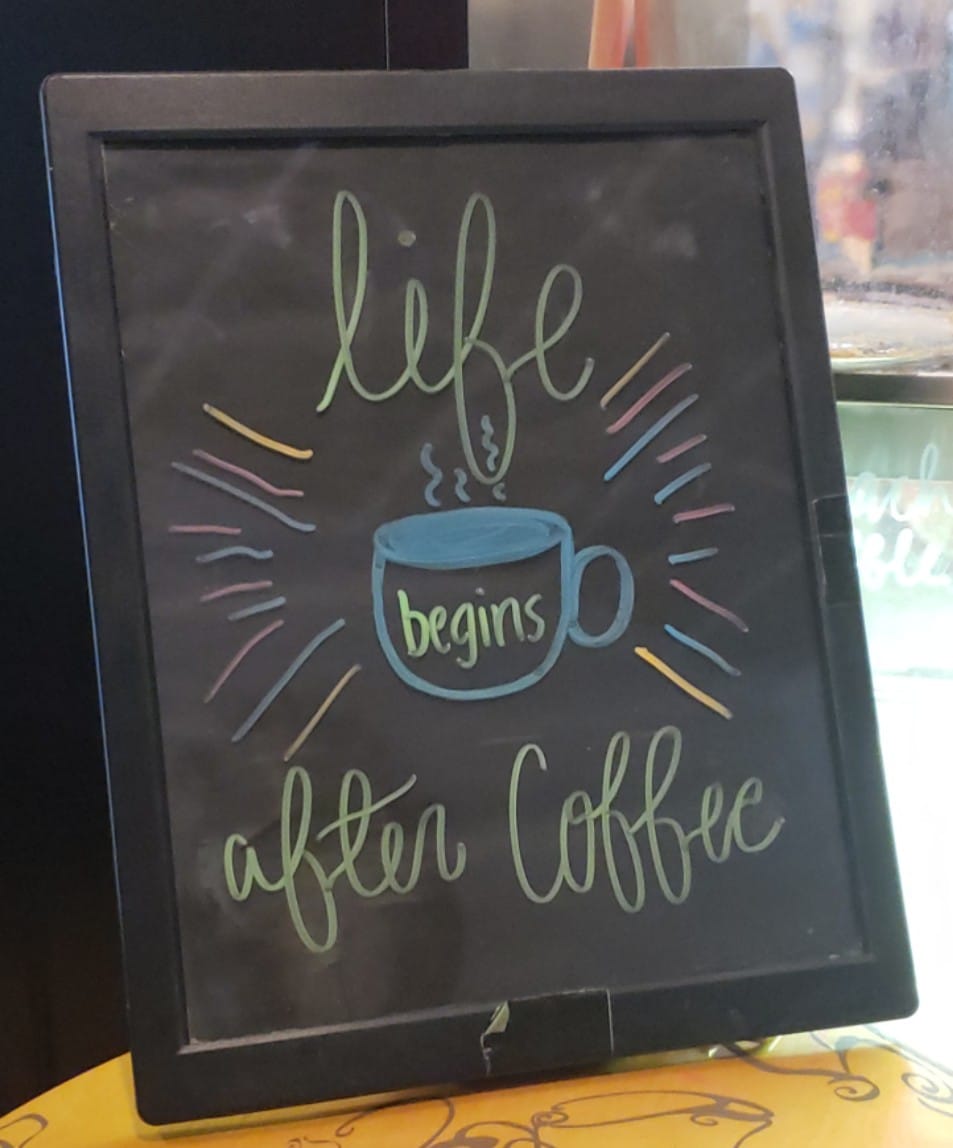 life
begins
after Coffee